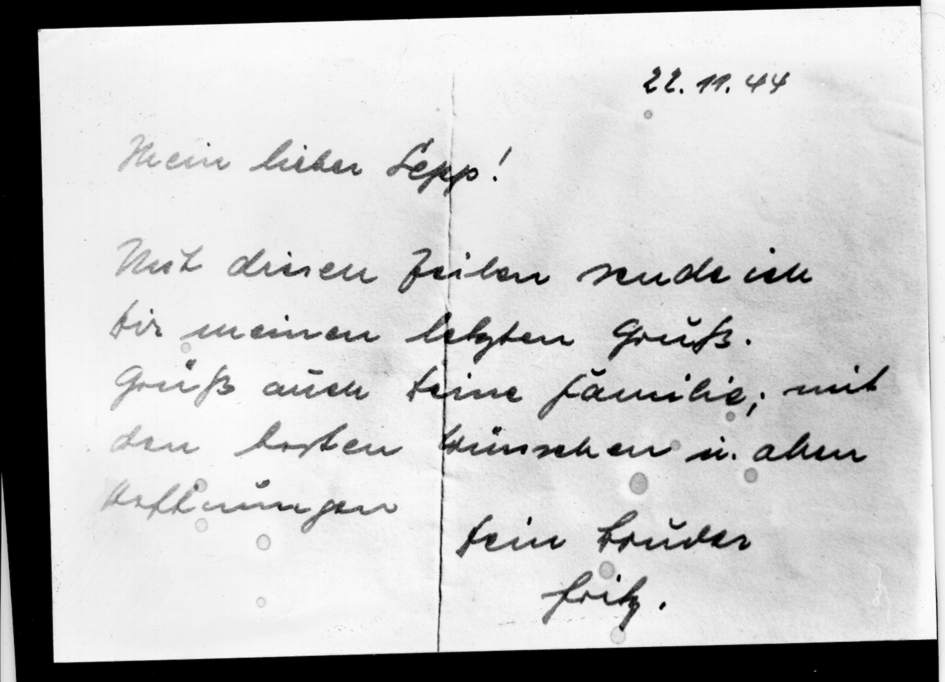 22.11.44
Mein lieber Sepp!
Mit diesen Zeilen sende ich
Dir meinen letzten Gruß.
Grüß auch Deine Familie; mit
den besten Wünschen u. allen
Hoffnungen
Dein Bruder
Fritz.